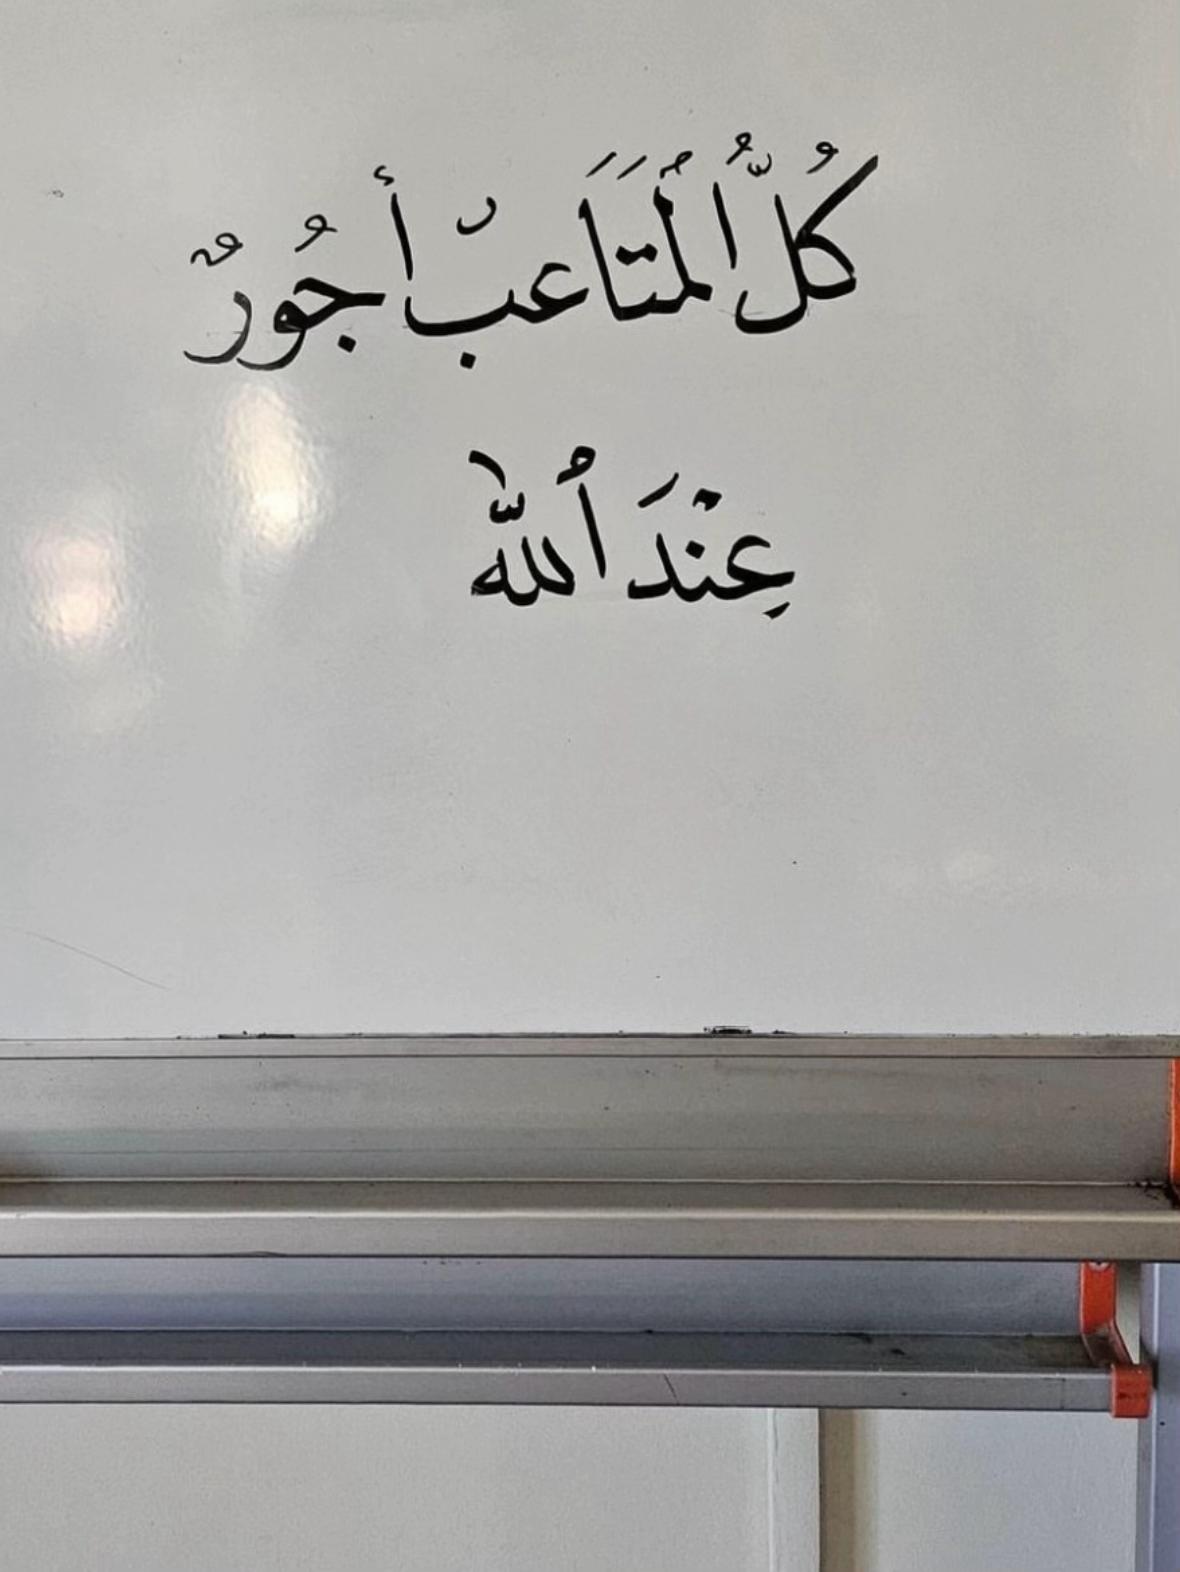 كُلُّ الْمُتَاعبّ أجُورٌ
عِنْدَ اُللّٰه